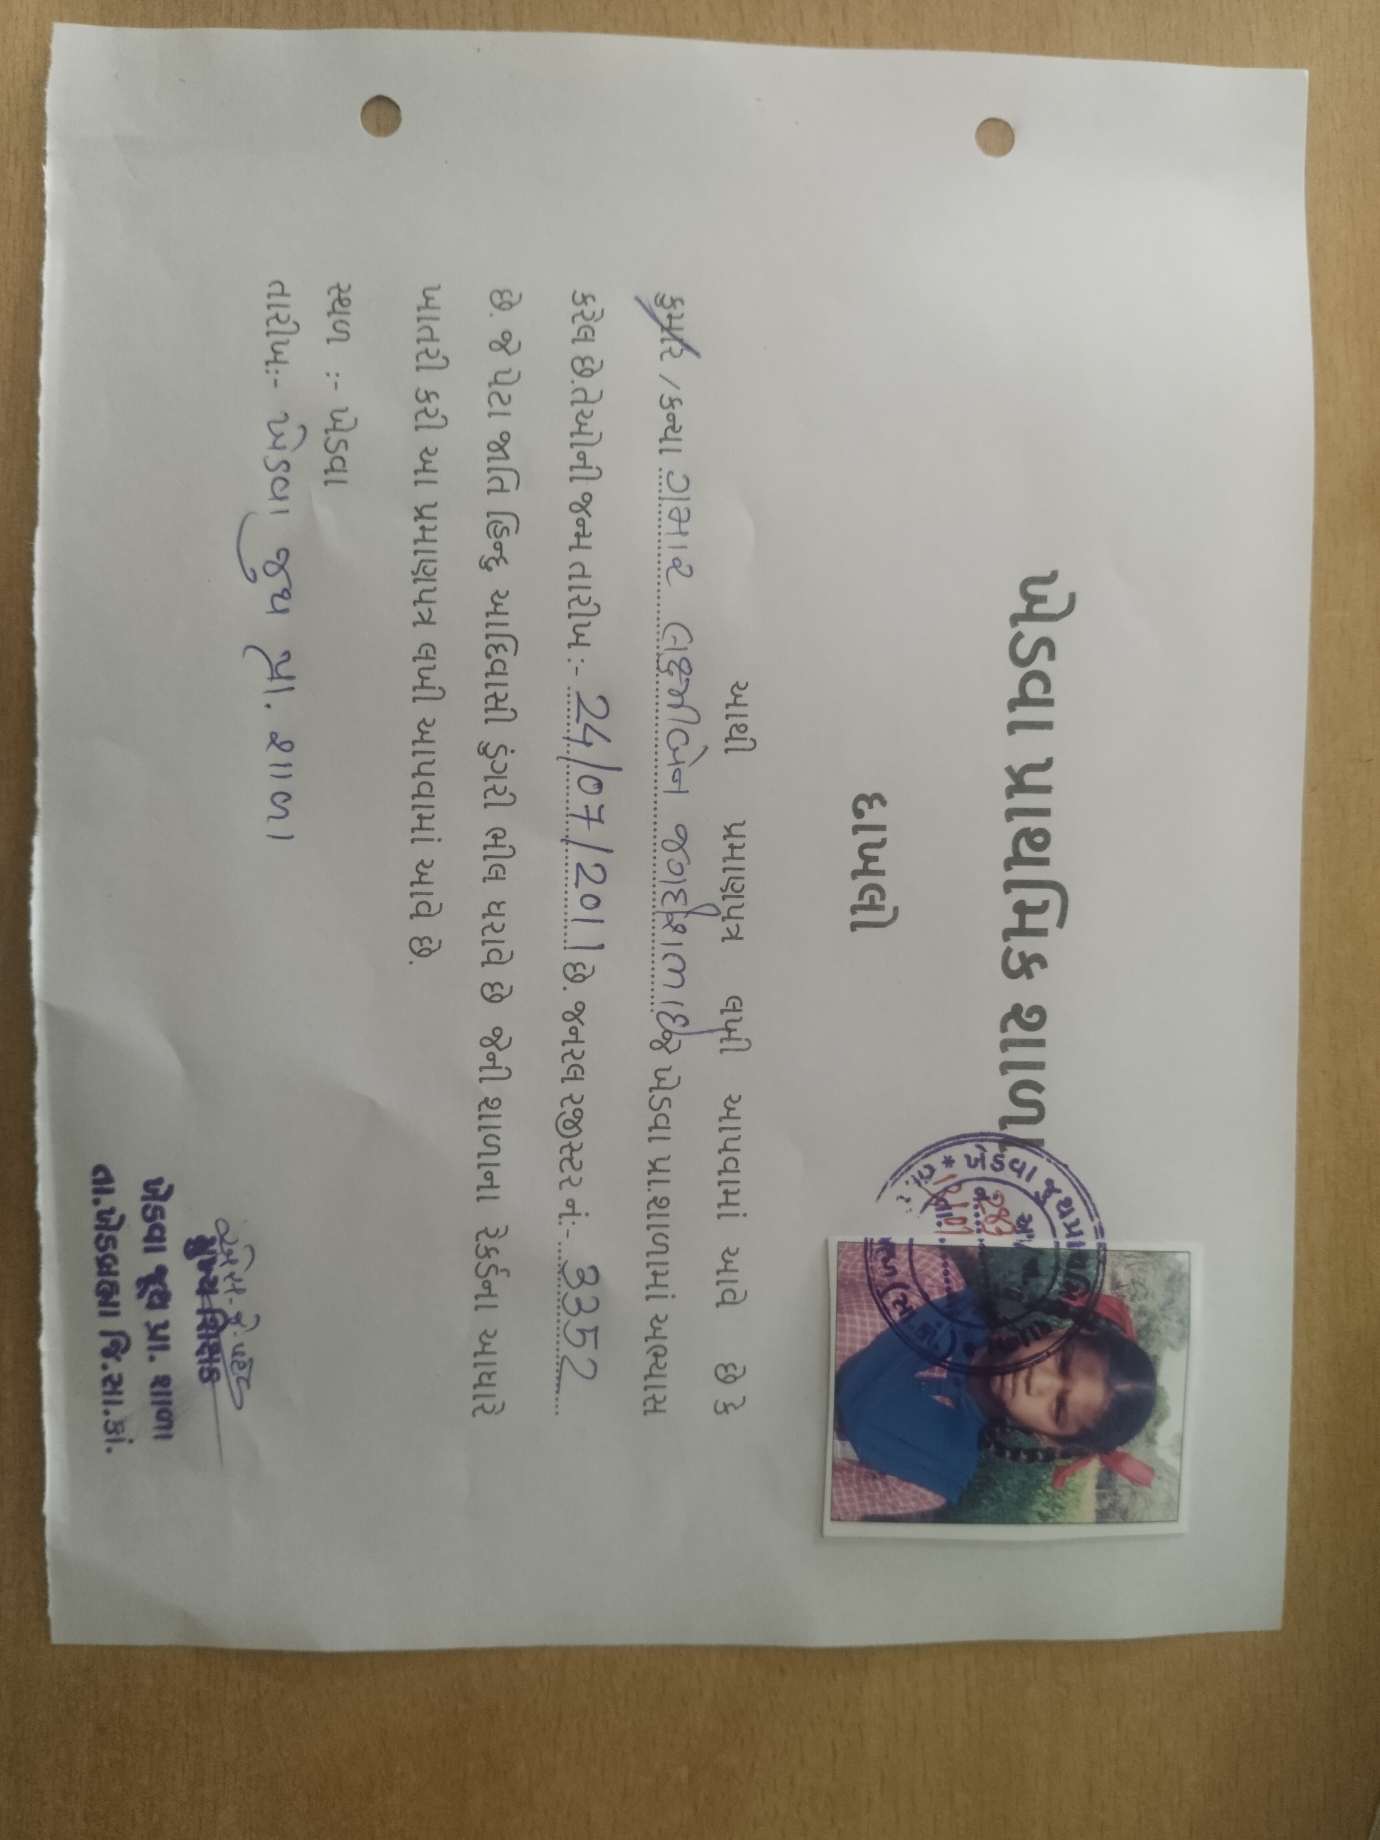 ખેડવા પ્રાથમિક શાળા
દાખલો
આથી પ્રમાણપત્ર લખી આપવામાં આવે છે કે
કુમાર / કન્યા ગમાર લક્ષ્મીબેન જગદીશભાઈ જે ખેડવા પ્રા.શાળામાં અભ્યાસ
કરેલ છે.તેઓની જન્મ તારીખ :- 24/07/2011 છે. જનરલ રજીસ્ટર નં:- 3352
છે. જે પેટા જાતિ હિન્દુ આદિવાસી ડુંગરી ભીલ ધરાવે છે જેની શાળાના રેકર્ડના આધારે
ખાતરી કરી આ પ્રમાણપત્ર લખી આપવામાં આવે છે.
સ્થળ :- ખેડવા
તારીખ:- ખેડવા જુથ પ્રા. શાળા
મુખ્ય શિક્ષક
ખેડવા જૂથ પ્રા. શાળા
તા.ખેડબ્રહ્મા જિ.સા.કાં.
* ખેડવા જુથ
283